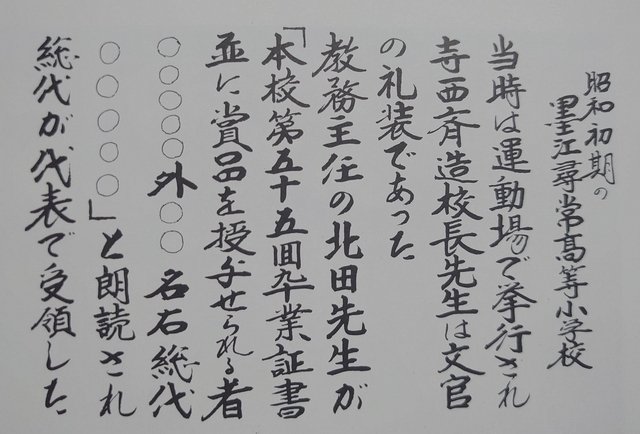 昭和初期の
墨江尋常高等小学校
当時は運動場で挙行され
寺西斉造校長先生は文官
の礼装であった
教務主任の北田先生が
「本校第五十五回卆業証書
並に賞品を授与せられる者
○○○○○外○○名右総代
○○○○○」と朗読され
総代が代表で受領した